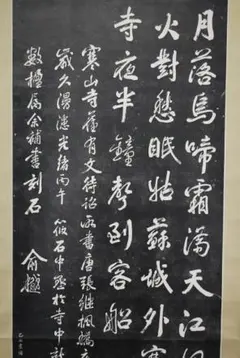 月落烏啼霜滿天江
火對愁眠姑蘇城外寒
寺夜半鐘聲到客船
寒山寺舊有文待詔所書唐張繼楓橋
歲久漫漶光緒丙午筱石中丞於寺中新
數楹屬余補書刻石 俞樾